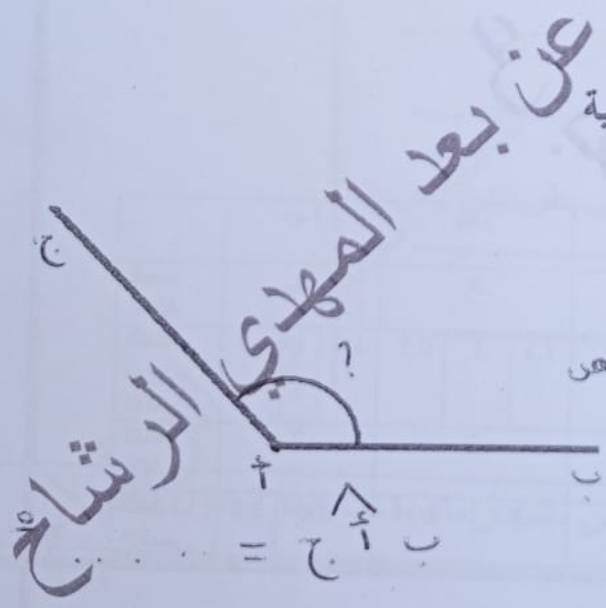 عن بعد المهدي الرشاح
ج
؟
أ
ب
ب أ ج = . . . . .